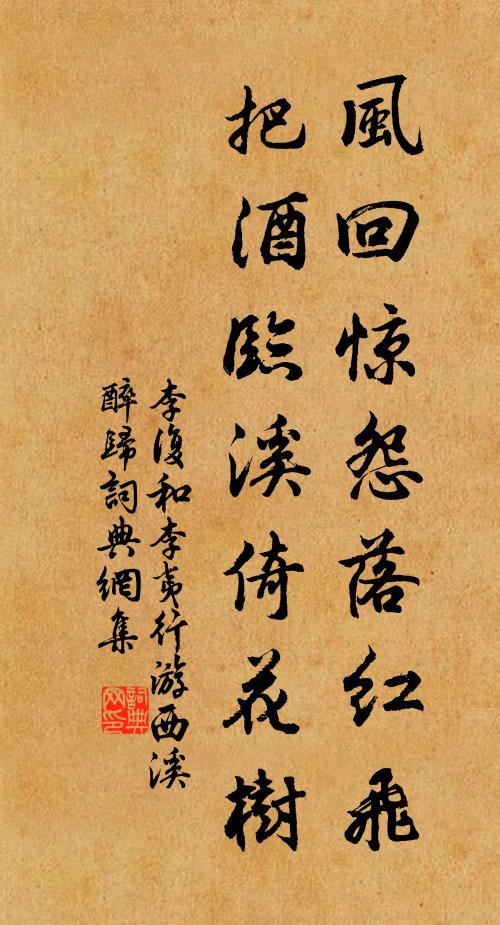 風回惊怨落红飛
把酒臨溪倚花樹
李復和李夷行游西溪
醉歸詞典網集
詞典网印